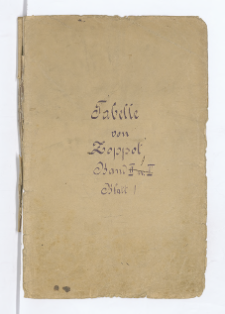 Tabelle
von
Zoppot
Band
Blatt 1